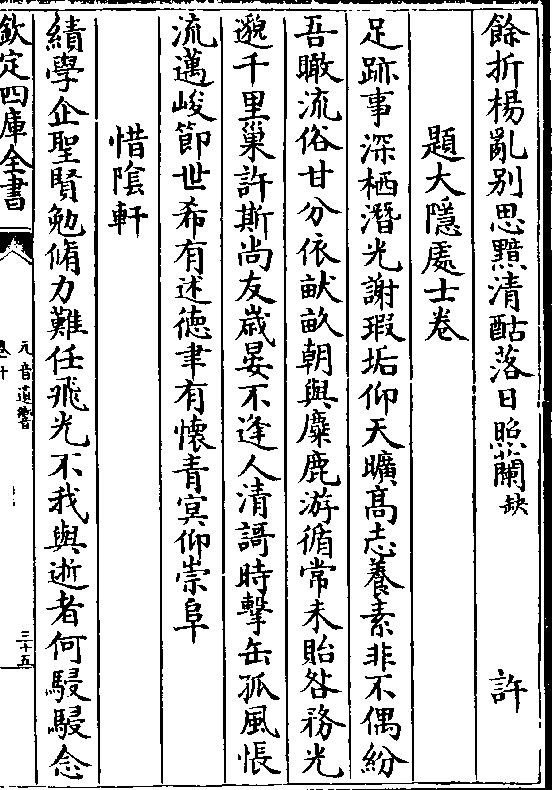 餘折楊亂别思黯清酤落日照蘭缺 許
題大隱處士卷
足跡事深栖潛光謝瑕垢仰天曠髙志養素非不偶紛
吾瞰流俗甘分依畎畝朝與麋鹿游循常未貽咎務光
邈千里巢許斯尚友歳晏不逢人清謌時擊缶孤風悵
流邁峻節世希有述德聿有懷青冥仰崇阜
惜隂軒
績學企聖賢勉脩力難任飛光不我與逝者何駸駸念
欽定四庫全書
元音遺響
卷十
三十五